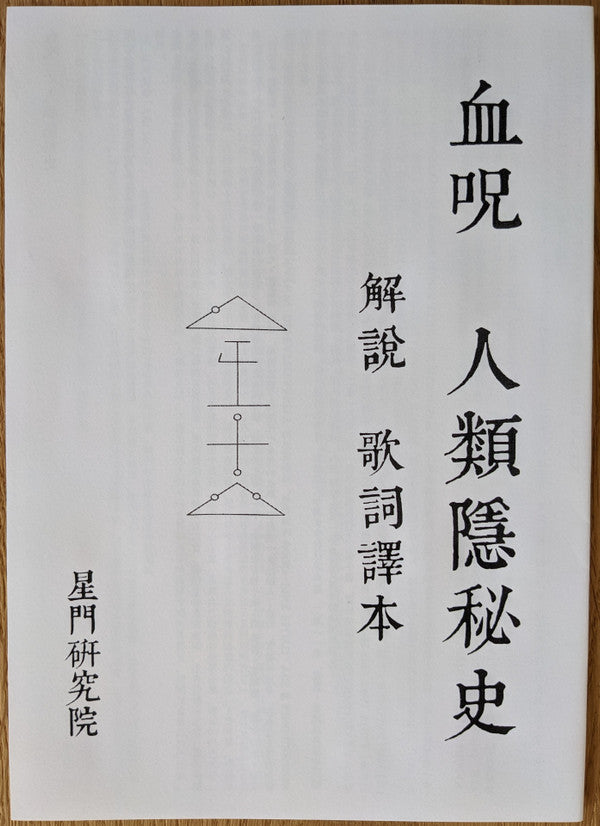 血呪 人類隱秘史
解說 歌詞譯本
星門研究院